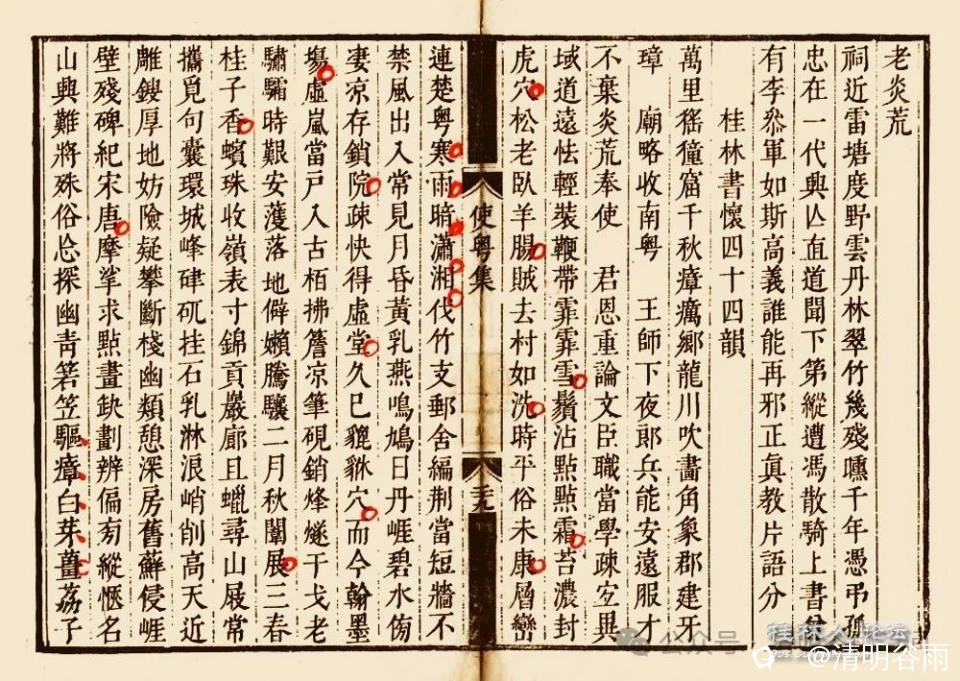 老炎荒
祠近雷塘度野雲丹林翠竹幾殘曛千年憑弔孤
忠在一代興亾直道聞下第縱遭馮散騎上書曾
有李叅軍如斯高義誰能再邪正眞教片語分
桂林書懷四十四韻
萬里猺獞窟千秋瘴癘鄉龍川吹畵角象郡建牙
璋 廟略收南粵 王師下夜郎兵能安遠服才
不棄炎荒奉使 君恩重論文臣職當學疎宐異
域道遠怯輕裝鞭帶霏霏雪鬚沾點點霜苔濃封
虎穴松老臥羊腸賊去村如洗時平俗未康層巒
使粵集
連楚粵寒雨暗瀟湘伐竹支郵舍編荆當短牆不
禁風出入常見月昏黃乳燕鳴鳩日丹崕碧水傍
凄凉存鎖院疎快得虛堂久已貔貅穴而今翰墨
塲虛嵐當戶入古栢拂簷凉筆硯銷烽燧干戈老
驌驦時艱安濩落地僻嬾騰驤二月秋闈展三春
桂子香蠙珠收嶺表寸錦貢巖廊且蠟尋山屐常
攜覓句囊環城峰硉矹挂石乳淋浪峭削高天近
雕鎪厚地妨險疑攀斷棧幽類憩深房舊蘚侵崕
壁殘碑紀宋唐摩挲求點畫缺劃辨偏旁縱愜名
山興難將殊俗忘探幽靑箬笠驅瘴白芽薑荔子
公众号
桂林人论坛
@清明谷雨